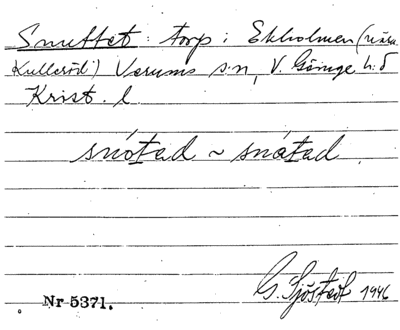 Snuffet: torp i Ekholmen (nära
Kulleröd) Verums s:n, V. Göinge h:d
Krist. l
snótad ~ snátad
G. Sjöstedt 1946
Nr 5371.